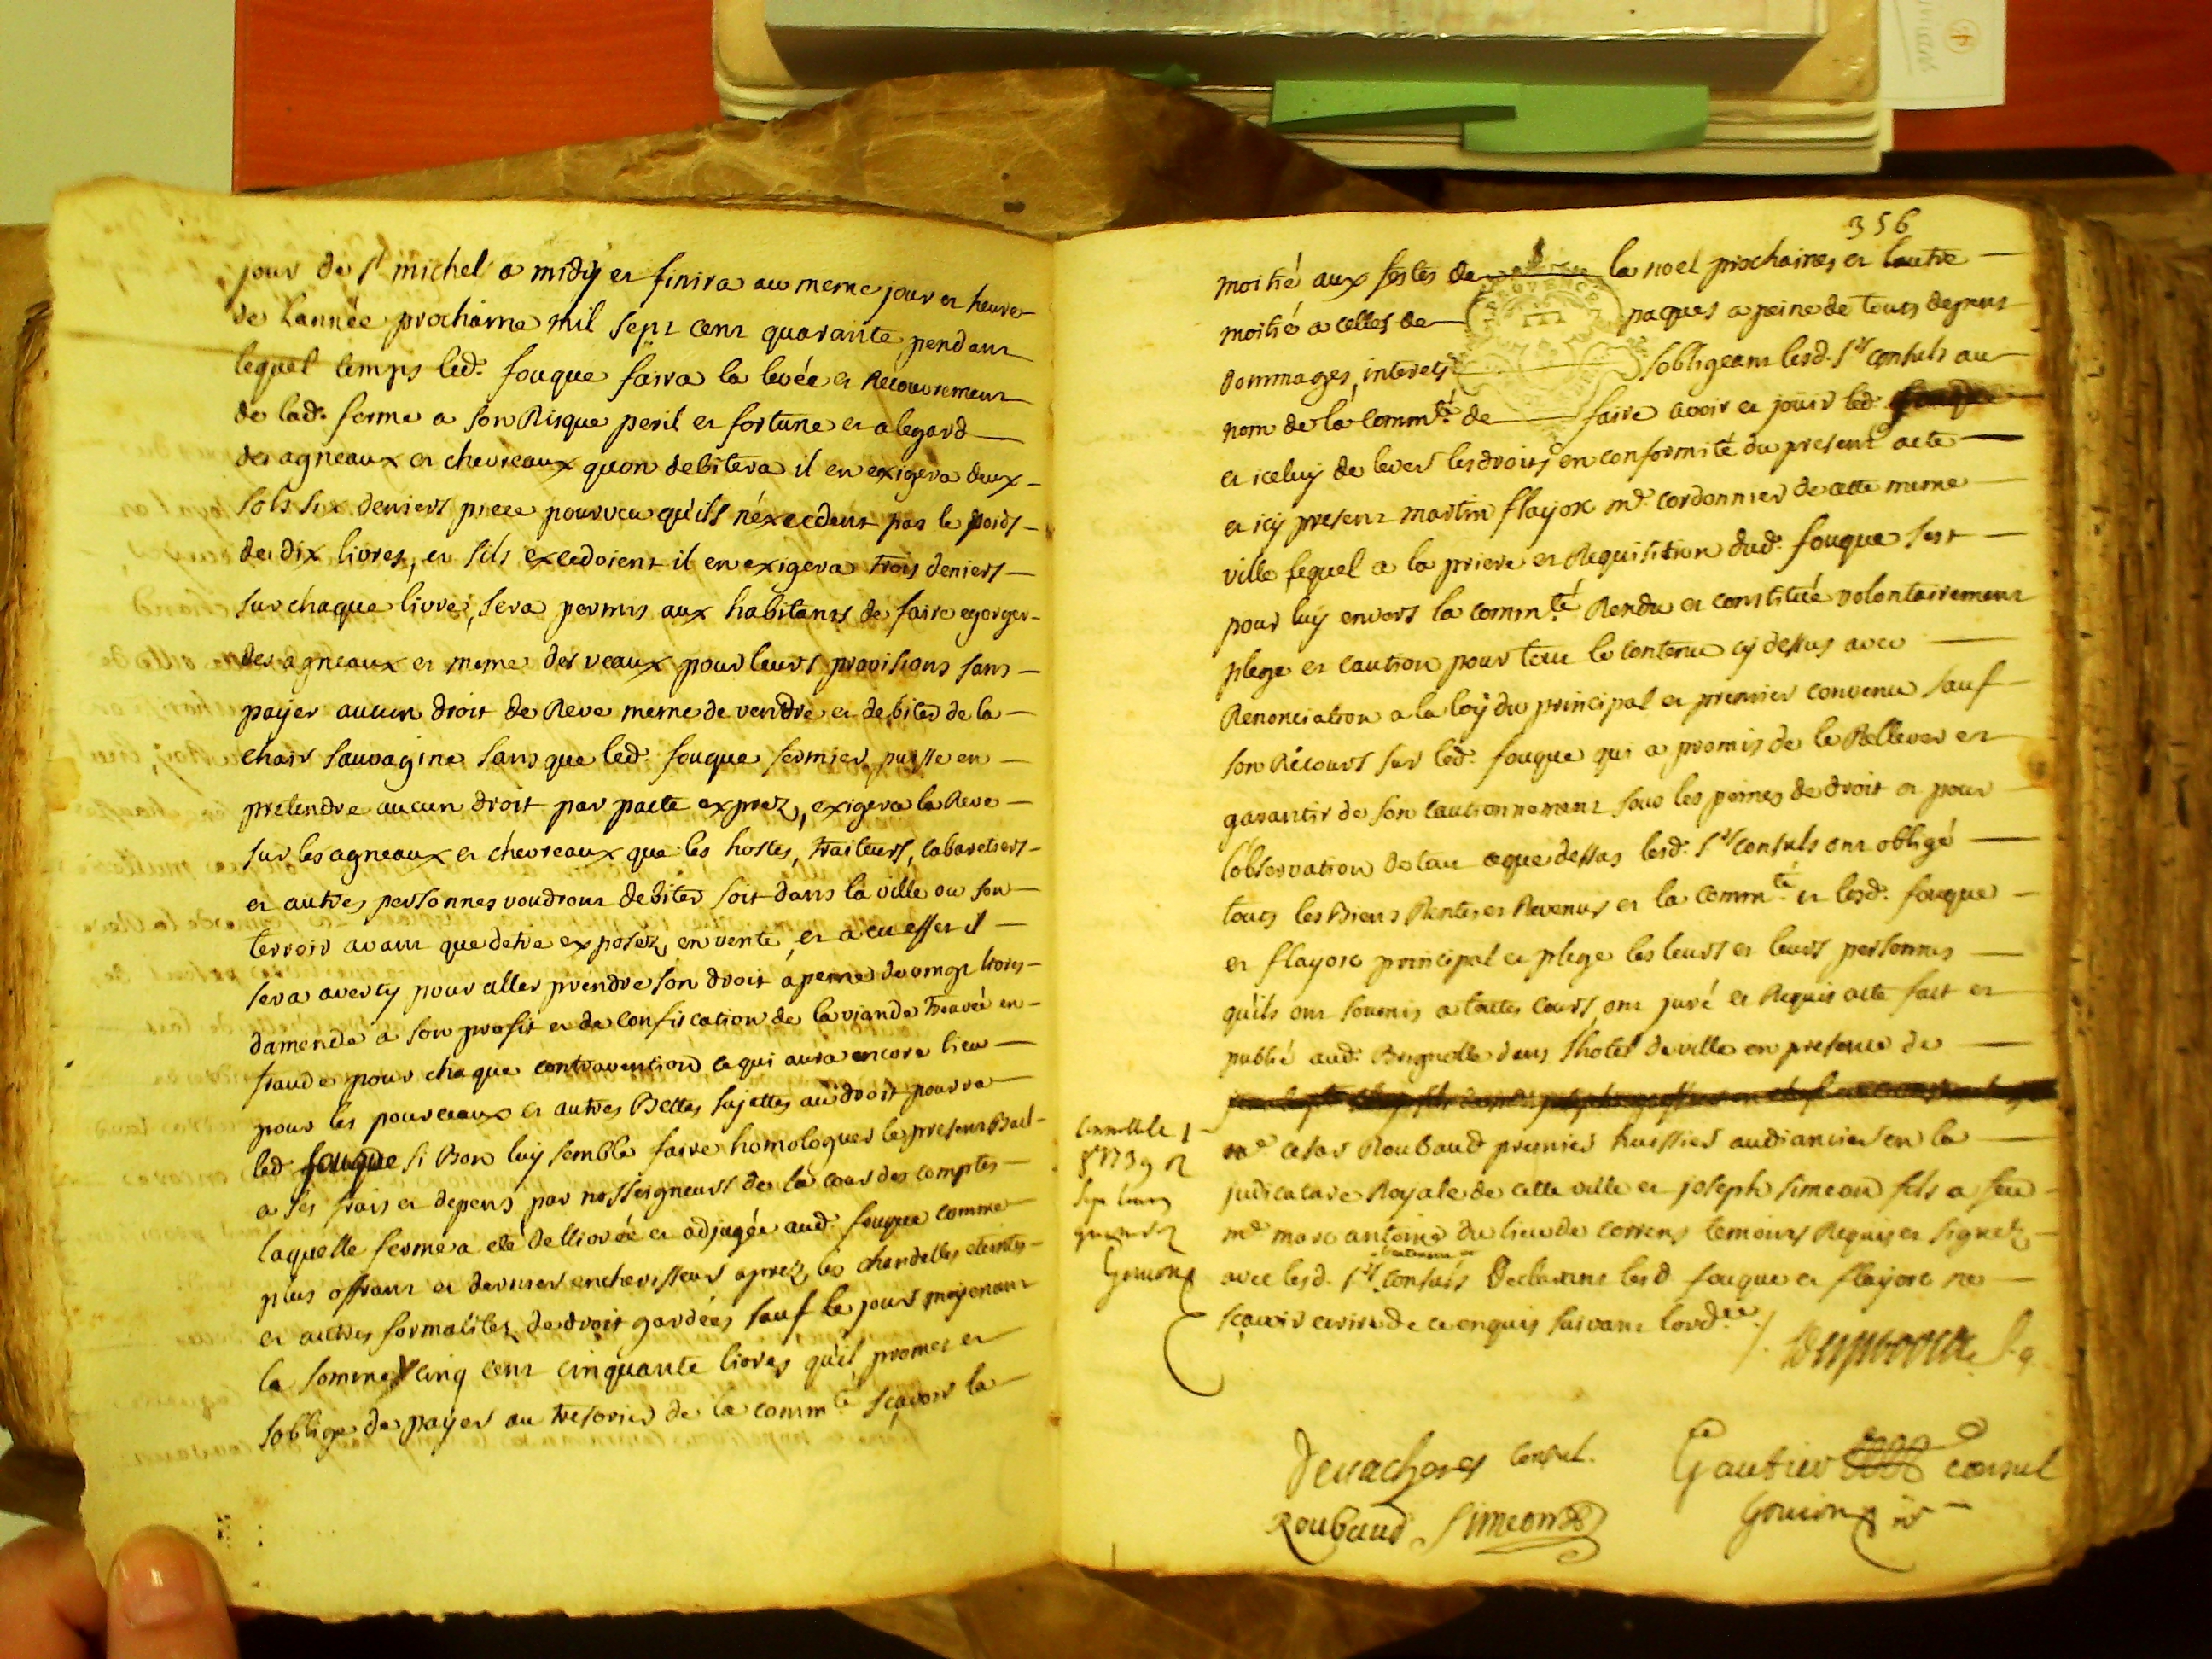 jour de St michel a midy et finira au meme jour et heure
de lannée prochaine mil sept cent quarante pendant
lequel temps led. fouque faira la levée et Recouvrement
de lad. ferme a son Risque peril et fortune et alegard
des agneaux et chevreaux quon debitera il en exigera deux
sols six deniers piece pourveu qu'ils n'éxcedent pas le poids
de dix livres, et sils excedoient il en exigera trois deniers
sur chaque livre, sera permis aux habitants de faire egorger
des agneaux et meme des veaux pour leurs provisions sans
payer aucun droit de Reve meme de vendre et debiter de la
chair sauvagine sans que led. fouque fermier puisse en
pretendre aucun droit par pacte exprez, exigera la Reve
sur les agneaux et chevreaux que les hostes, traiteurs, cabaretiers
et autres personnes voudront debiter soit dans la ville ou son
terroir avant que detre exposez en vente et a cu effet il
sera averty pour aller prendre son droit a peine de vingt livres
damende a son profit et de confiscation de la viande trouvée en
fraude pour chaque contravention ce qui aura encore lieu
pour les pourceaux et autres Bettes sujettes au droit pourra
led. fouque si Bon luy semble faire homologuer le present Bail
a ses frais et depens par nosseigneurs de la cour des comptes
laquelle ferme a eté dellivrée et adjugée aud. fouque comme
plus offrant et dernier encherisseur aprez les chandelles eteintes
et autres formalitez de droit gardées sauf le jour moyenant
la somme cinq cent cinquante livres qu'il promet et
soblige de payer au tresorier de la comm.té sçavoir la
356
moitié aux festes de la noel prochaines et lautre
moitié a celles de paques a peine de tous depens
dommages, interets sobligeant lesd. Srs consuls au
nom de la comm.té de faire avoir et joüir led. fouque
et iceluy de lever les droits en conformité du present acte
et icy present martin flayosc me. cordonnier de cette meme
ville lequel a la priere et Requisition dud. fouque sest
pour luy envers la comm.té Rendu et constitué volontairement
plege et caution pour tout le contenu cy dessus avec
Renonciation a la loy du principal et premier convenu sauf
son Récours sur led. fouque qui a promis de le Rellever et
garantir de son cautionnement sous les peines de droit et pour
lobservation de tout ce que dessus lesd. Srs consuls ont obligé
tous les Biens Rentes et Revenus et la comm.té et lesd. fouque
et flayosc principal et plege les leurs et leurs personnes
qu'ils ont soumis a toutes cours, ont juré et Requis acte fait et
publié aud. Brignolle dans lhotel de ville en presence de
me. cesar Roubaud premier huissier audiancier en la
judicature Royale de cette ville et joseph simeon fils a feu
me. marc antoine du lieu de correns temoins Requis et signez
avec lesd. Srs consuls Declarant lesd fouque et flayosc ne
sçavoir ecrire de ce enquis suivant lord.ce
Gouion
consul.
Gautier consul
Roubaud Simeon
Gouion nore